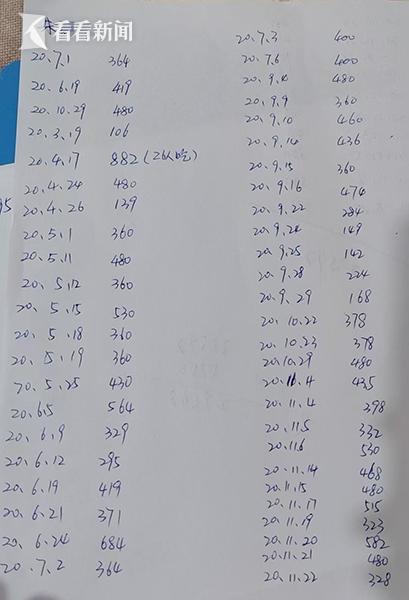 看看新闻
朱
20、7、1 364
20、6、19 419
20、10、29 480
20、3、19 106
20、4、17 882(2人吃)
20、4、24 480
95
20、4、26 129
20、5、1 360
20、5、11 480
20、5、12 360
20、5、15 530
20、5、18 360
20、5、19 360
20、5、25 430
20、6、5 564
20、6、9 329
20、6、12 295
20、6、19 419
20、6、21 371
20、6、24 684
20、7、2 364
20、7、3 400
20、7、6 400
20、9、4 480
20、9、9 360
20、9、10 460
20、9、14 436
20、9、15 360
20、9、16 474
20、9、22 284
20、9、24 149
20、9、25 142
20、9、28 224
20、9、29 168
20、10、22 378
20、10、23 378
20、10、29 480
20、11、4 435
20、11、4 398
20、11、5 332
20、11、6 530
20、11、14 468
20、11、15 480
20、11、17 515
20、11、19 323
20、11、20 582
20、11、21 480
20、11、22 328